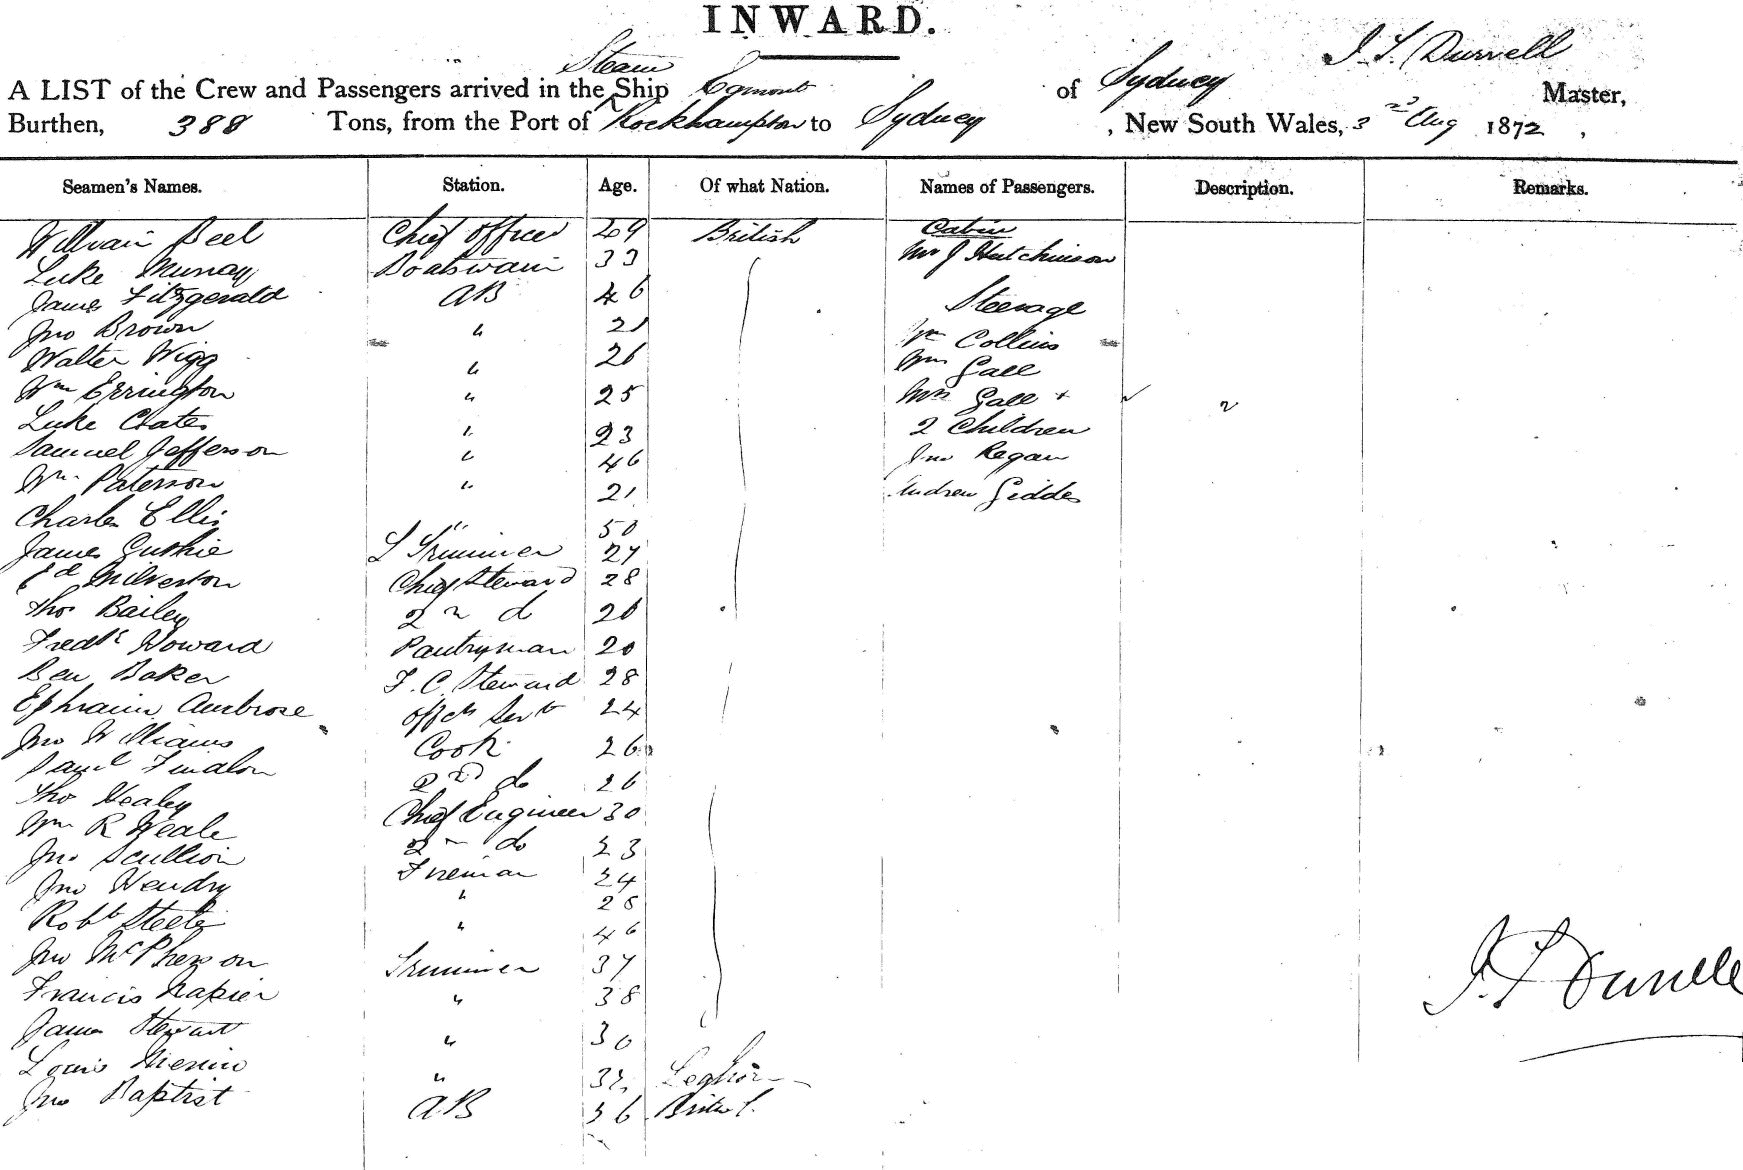 INWARD.
A LIST of the Crew and Passengers arrived in the Steam Ship Egmont of Sydney J. S. Durrell Master,
Burthen, 388 Tons, from the Port of Rockhampton to Sydney , New South Wales, 3rd Aug 1872 ,
Seamen's Names. Station. Age. Of what Nation. Names of Passengers. Description. Remarks.
William Beel Chief Officer 29 British Cabin
Luke Murray Boatswain 33 Mr J Hutchinson
James Fitzgerald AB 46 Steerage
Jno Brown " 21 Collins
Walter Wigg " 26 Wm Gall
Wm Errington " 25 Mrs Gall +
Luke Coates " 23 2 Children
Samuel Jefferson " 46 Jno Regan
Wm Paterson " 21 Andrew Geddes
Charles Ellis " 50
James Guthie Trimmer 27
Ed Milverton Chief Steward 28
Thos Bailey 2nd do 20
Fredk Howard Pantryman 20
Ben Baker F. C. Steward 28
Ephraim Ambrose Offcrs Servt 24
Jno Williams Cook 26
Saml 2nd do 26
Thos Healey Chief Engineer 30
Wm R Weale 2nd do 23
Jno Scullion Fireman 24
Jno Hendry " 28
Robt Steele " 46
Jno McPherson Trimmer 37
Francis Napier " 38
James Stewart " 30
Louis " 32 Leghorn
Jno Baptist AB 36 British
J. S. Durrell